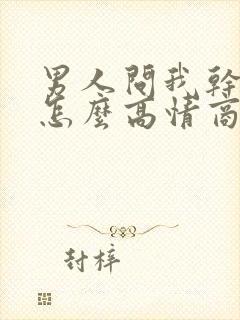 男人問我幹
怎麼高情商
封梓